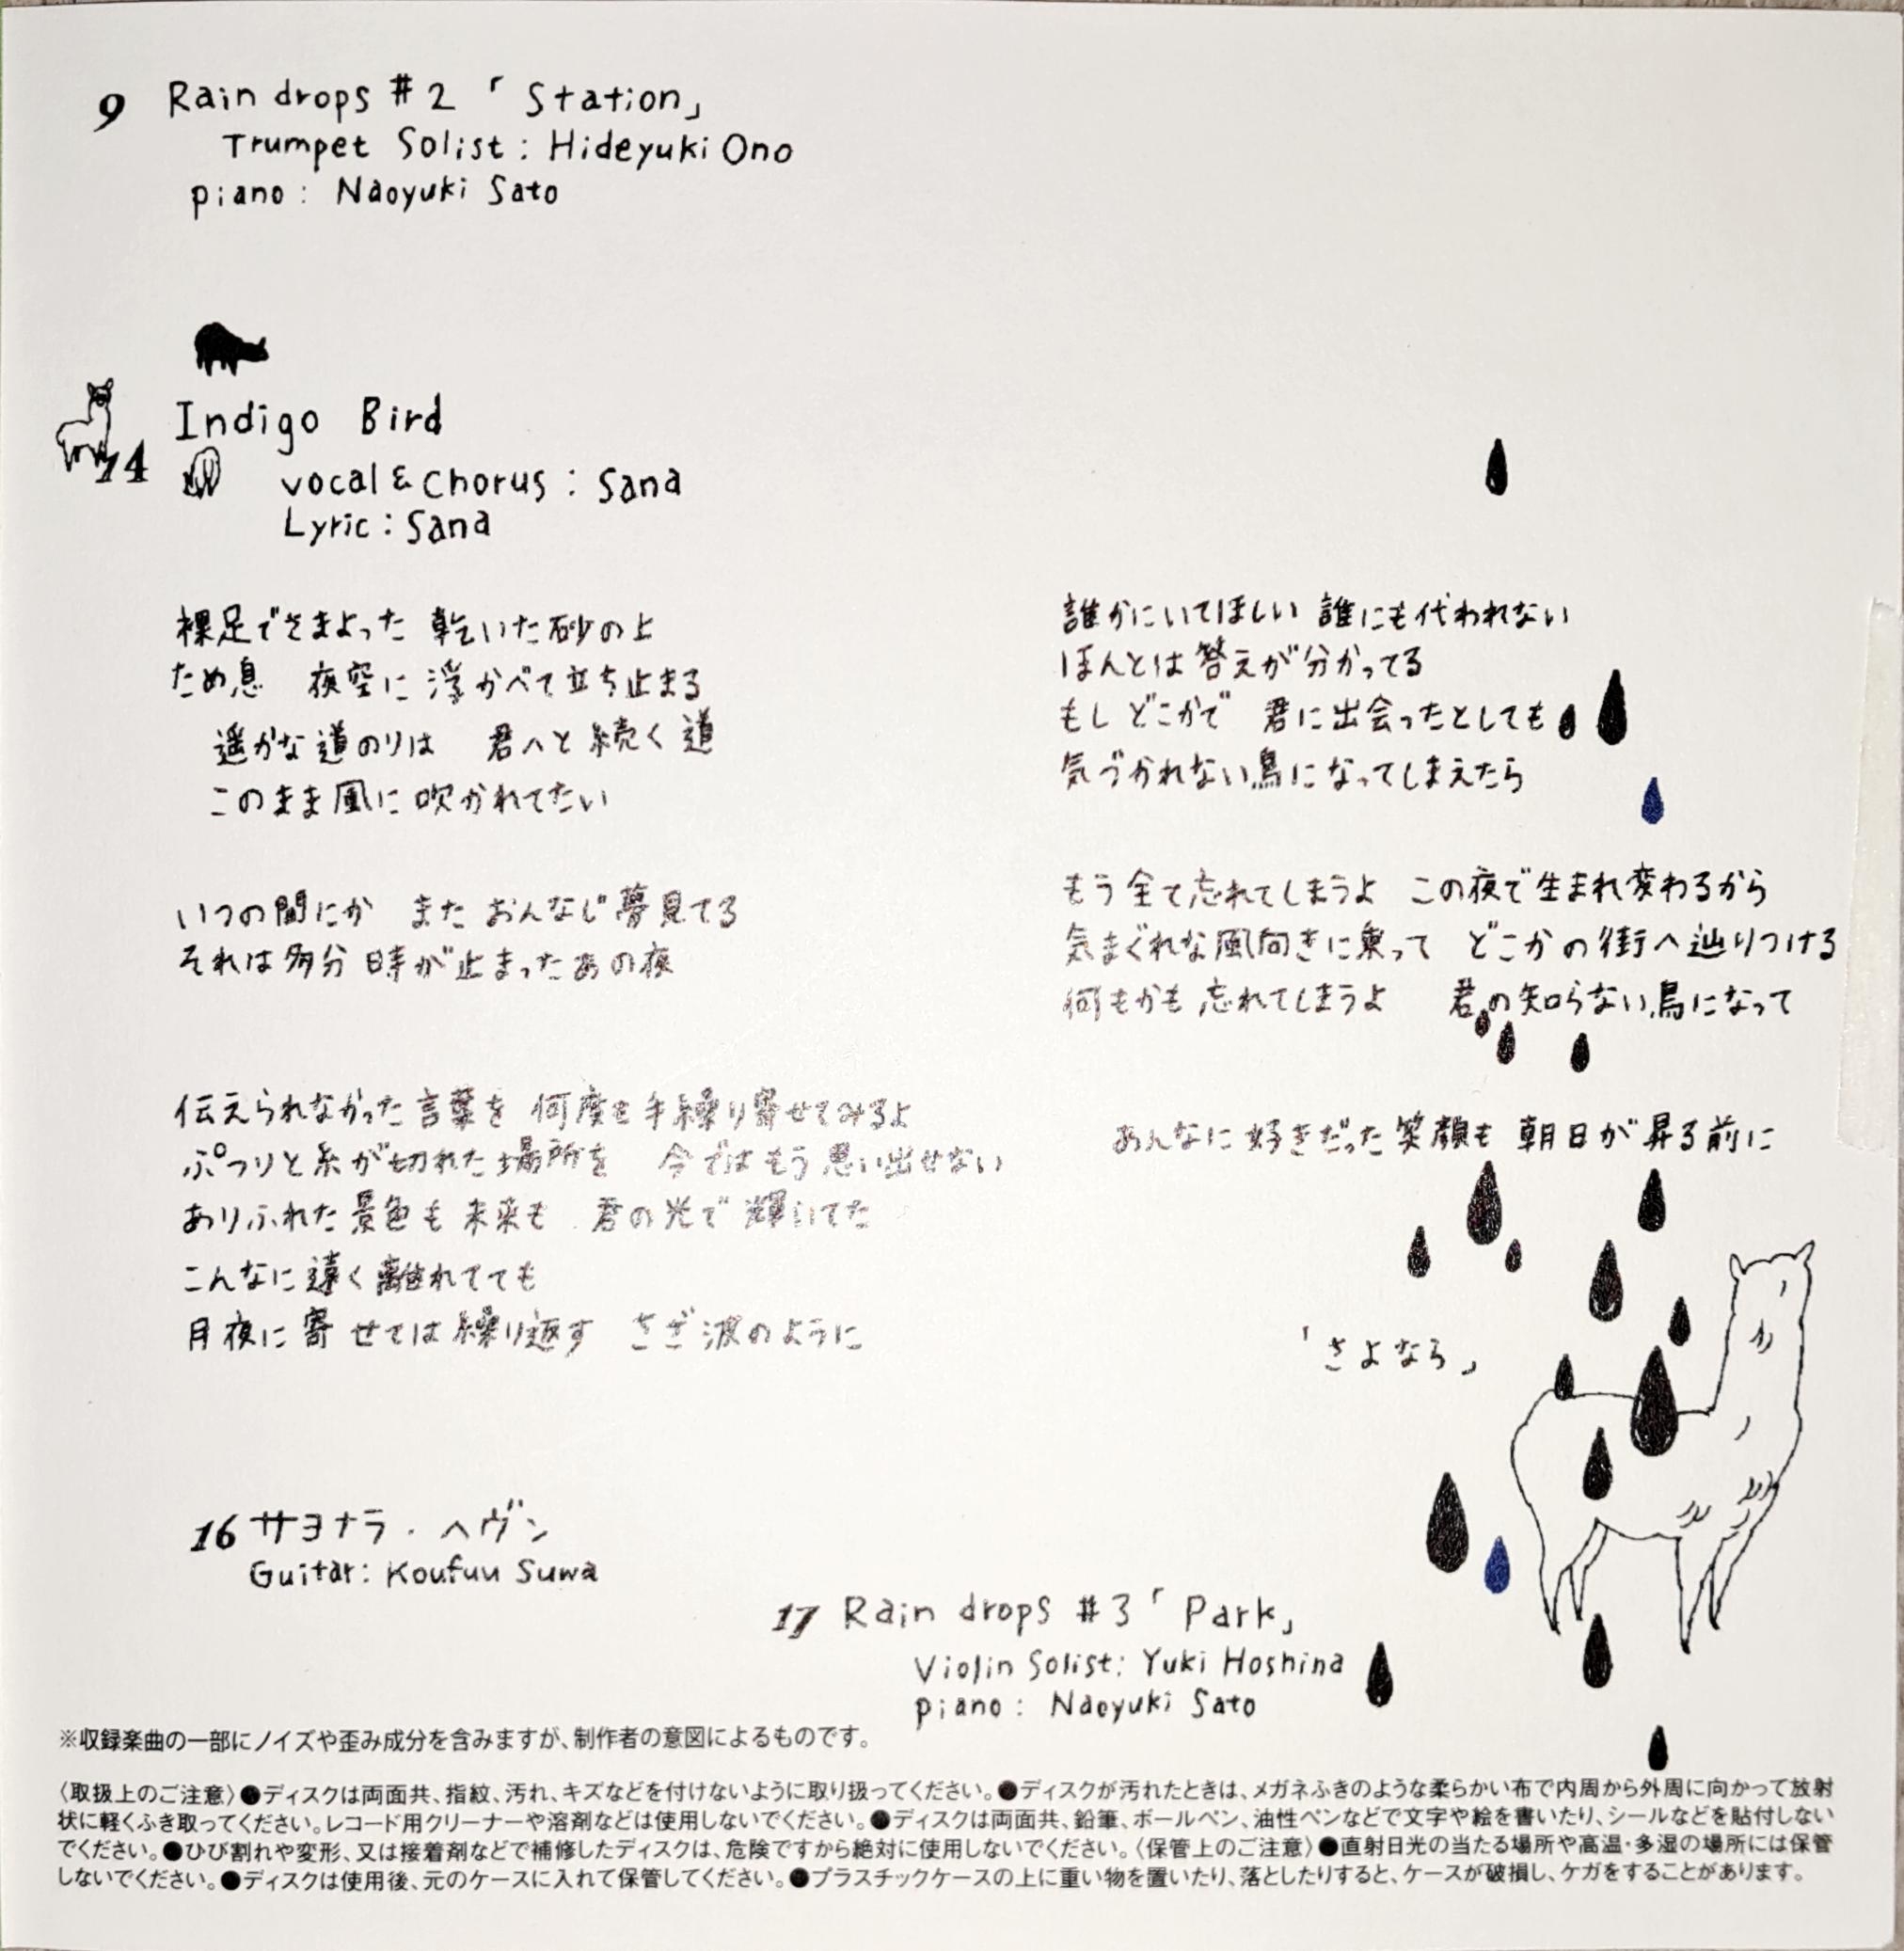 9 Rain drops #2「Station」
Trumpet Solist : Hideyuki Ono
piano : Naoyuki Sato
14 Indigo Bird
vocal & chorus : Sana
Lyric : Sana
裸足でさまよった 乾いた砂の上
ため息 夜空に浮かべて立ち止まる
遥かな道のりは 君へと続く道
このまま風に吹かれてたい
いつの間にか また おんなじ夢見てる
それは多分 時が止まったあの夜
伝えられなかった言葉を 何度も手繰り寄せてみるよ
ぷつりと糸が切れた場所を 今ではもう思い出せない
ありふれた景色も未来も 君の光で輝いてた
こんなに遠く離れてても
月夜に寄せては繰り返す さざ波のように
誰かにいてほしい 誰にも代われない
ほんとは答えが分かってる
もしどこかで 君に出会ったとしても
気づかれない鳥になってしまえたら
もう全て忘れてしまうよ この夜で生まれ変わるから
気まぐれな風向きに乗って どこかの街へ辿りつける
何もかも忘れてしまうよ 君の知らない鳥になって
あんなに好きだった笑顔も 朝日が昇る前に
「さよなら」
16 サヨナラ・ヘヴン
Guitar: Koufuu Suwa
17 Rain drops #3「Park」
Violin Solist: Yuki Hoshina
piano : Naoyuki Sato
※収録楽曲の一部にノイズや歪み成分を含みますが、制作者の意図によるものです。
〈取扱上のご注意〉●ディスクは両面共、指紋、汚れ、キズなどを付けないように取り扱ってください。●ディスクが汚れたときは、メガネふきのような柔らかい布で内周から外周に向かって放射
状に軽くふき取ってください。レコード用クリーナーや溶剤などは使用しないでください。●ディスクは両面共、鉛筆、ボールペン、油性ペンなどで文字や絵を書いたり、シールなどを貼付しない
でください。●ひび割れや変形、又は接着剤などで補修したディスクは、危険ですから絶対に使用しないでください。〈保管上のご注意〉●直射日光の当たる場所や高温・多湿の場所には保管
しないでください。●ディスクは使用後、元のケースに入れて保管してください。●プラスチックケースの上に重い物を置いたり、落としたりすると、ケースが破損し、ケガをすることがあります。